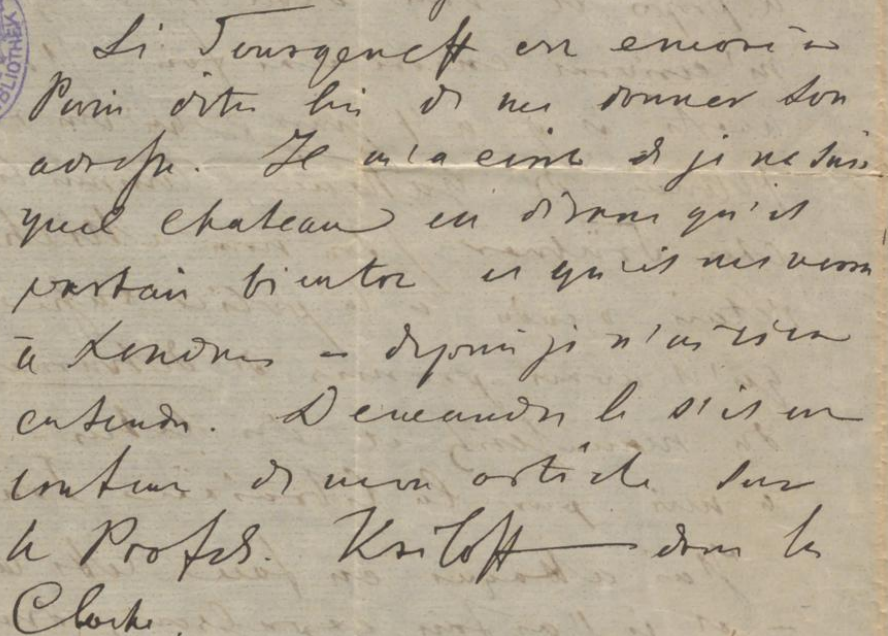 BLIOTHEK
Si Tourgeneff est encore à
Paris dites lui de me donner son
adresse. Il m'a écrit de je ne sais
quel chateau en disant qu'il
partait bientot et qu'il me verra
à Londres – depuis je n'ai rien
entendu. Demandez le s'il est
content de mon article sur
le Profes. Kriloff dans la
Cloche.